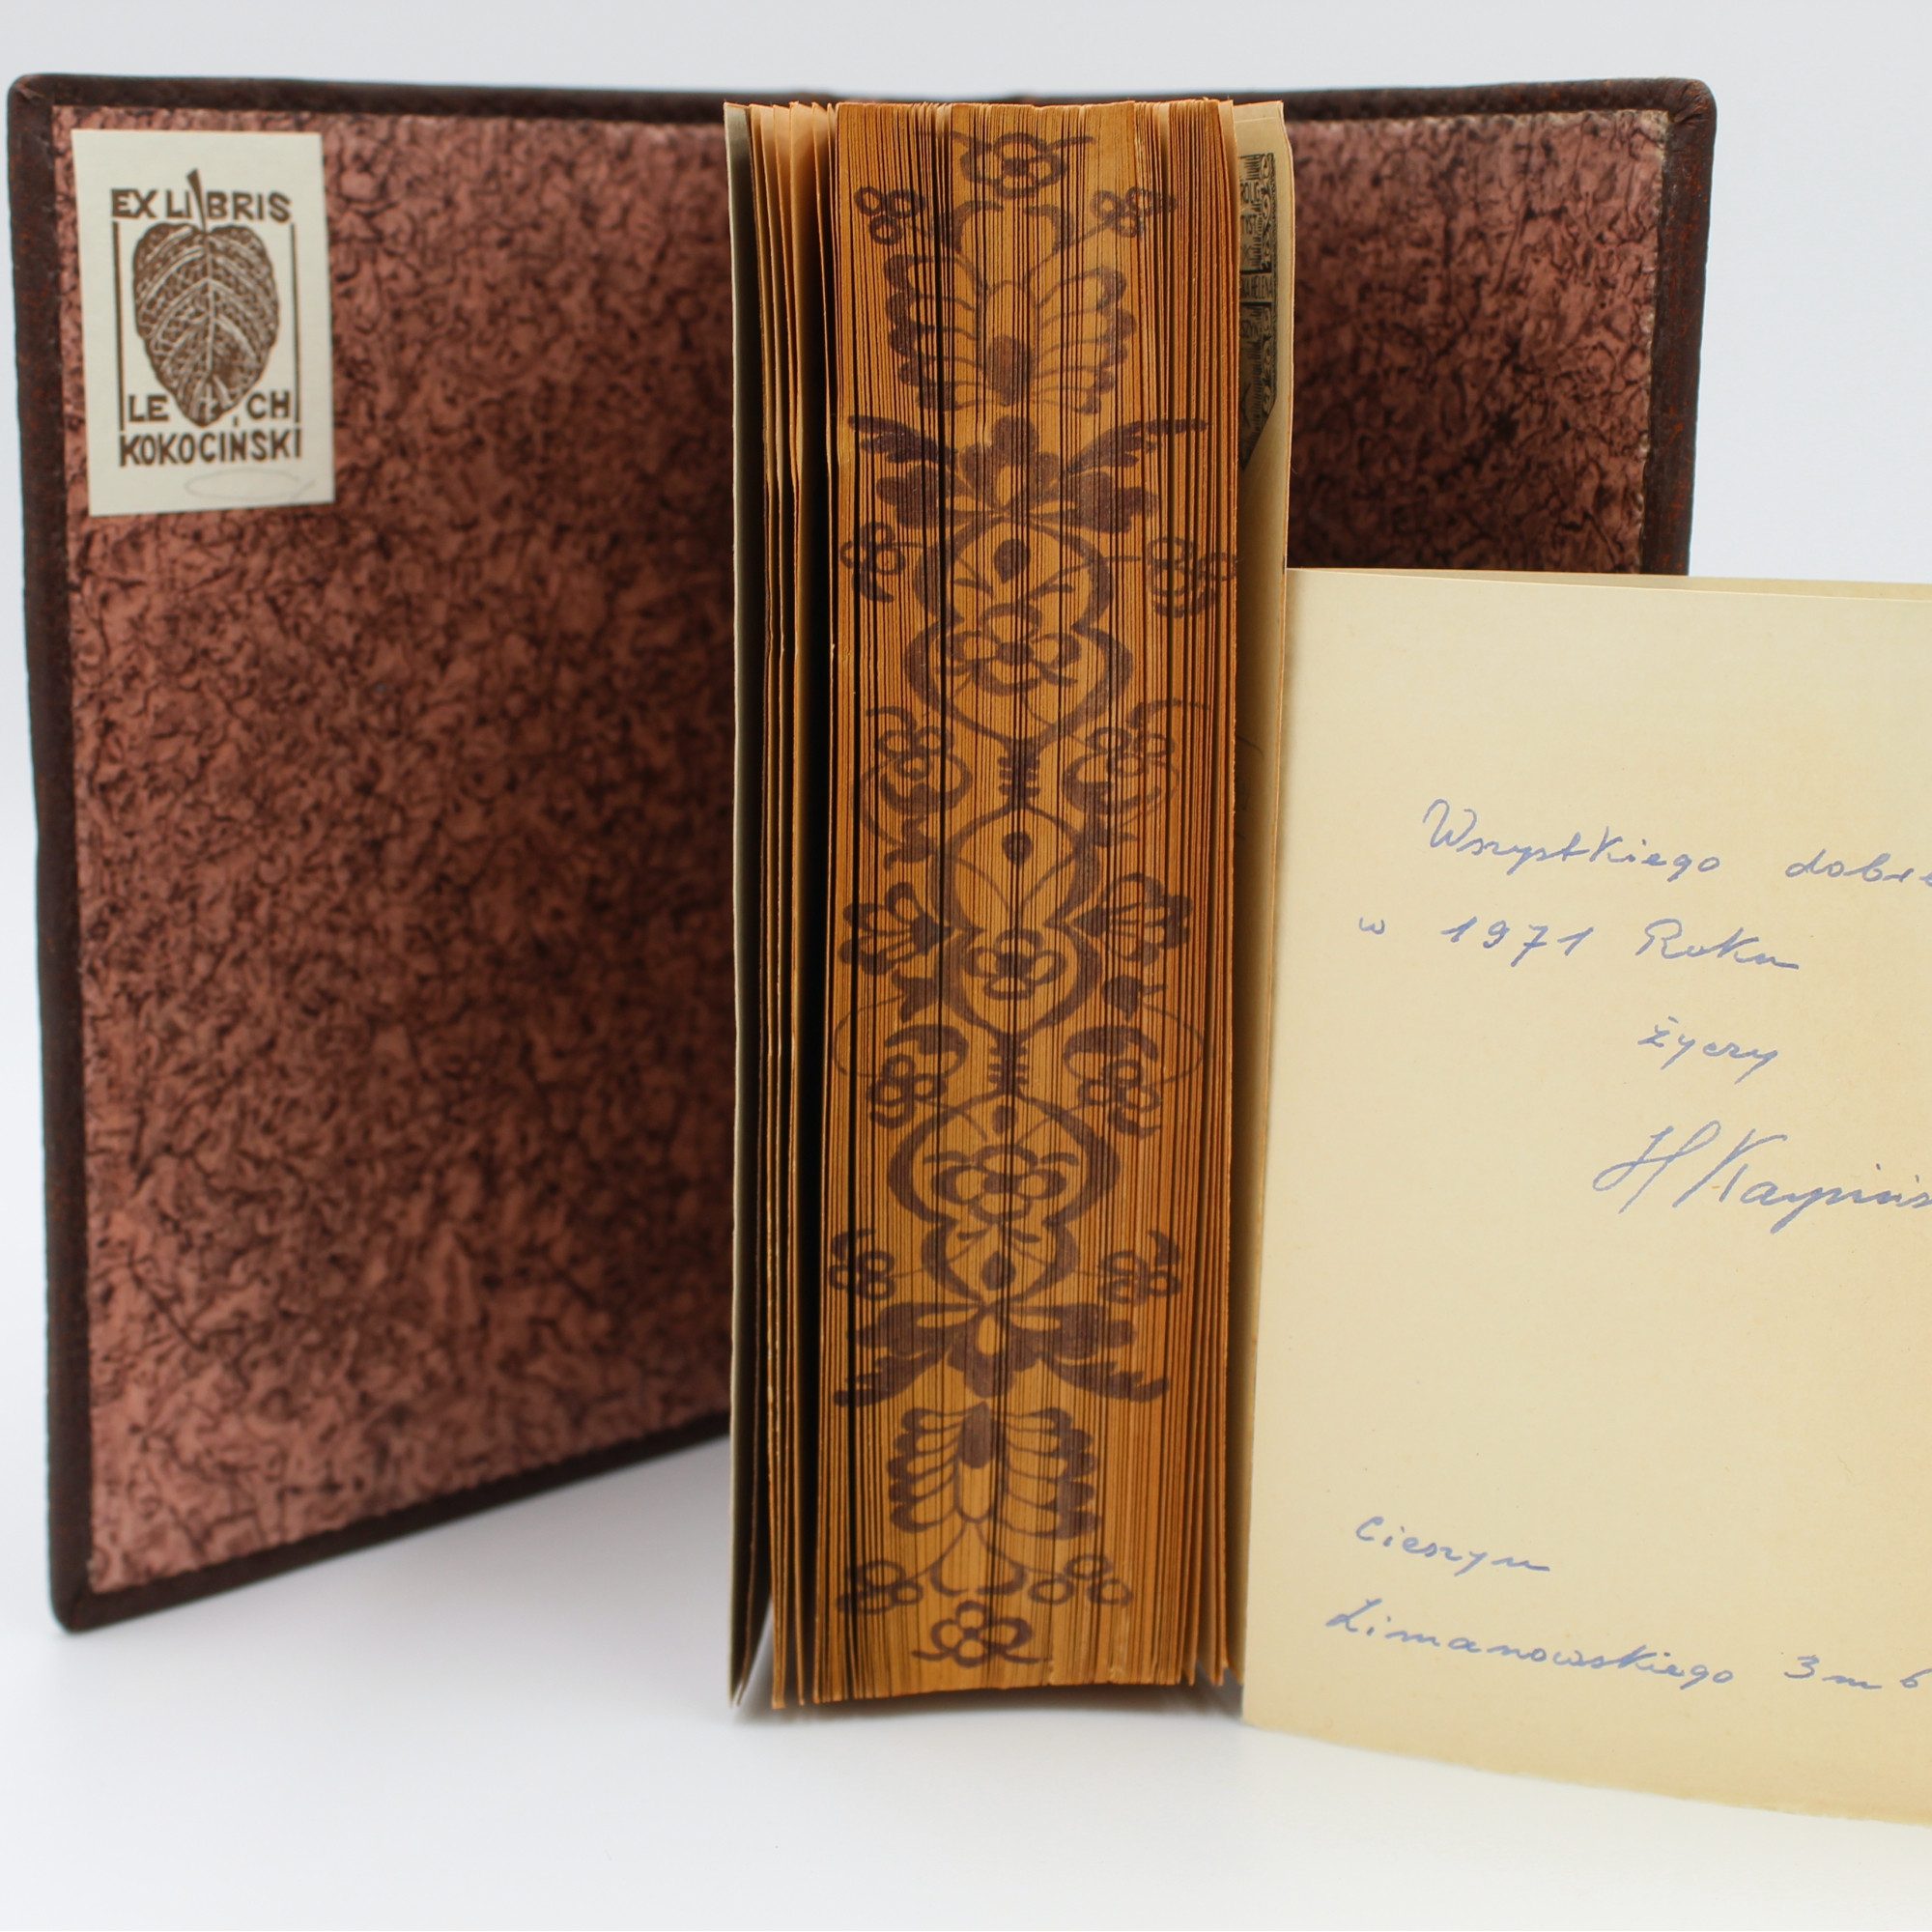 EX LIBRIS
LECH
KOKOCIŃSKI
Wszystkiego dobre
w 1971 Roku
życzy
H Karpińs
Cieszyn
Limanowskiego 3 m 6